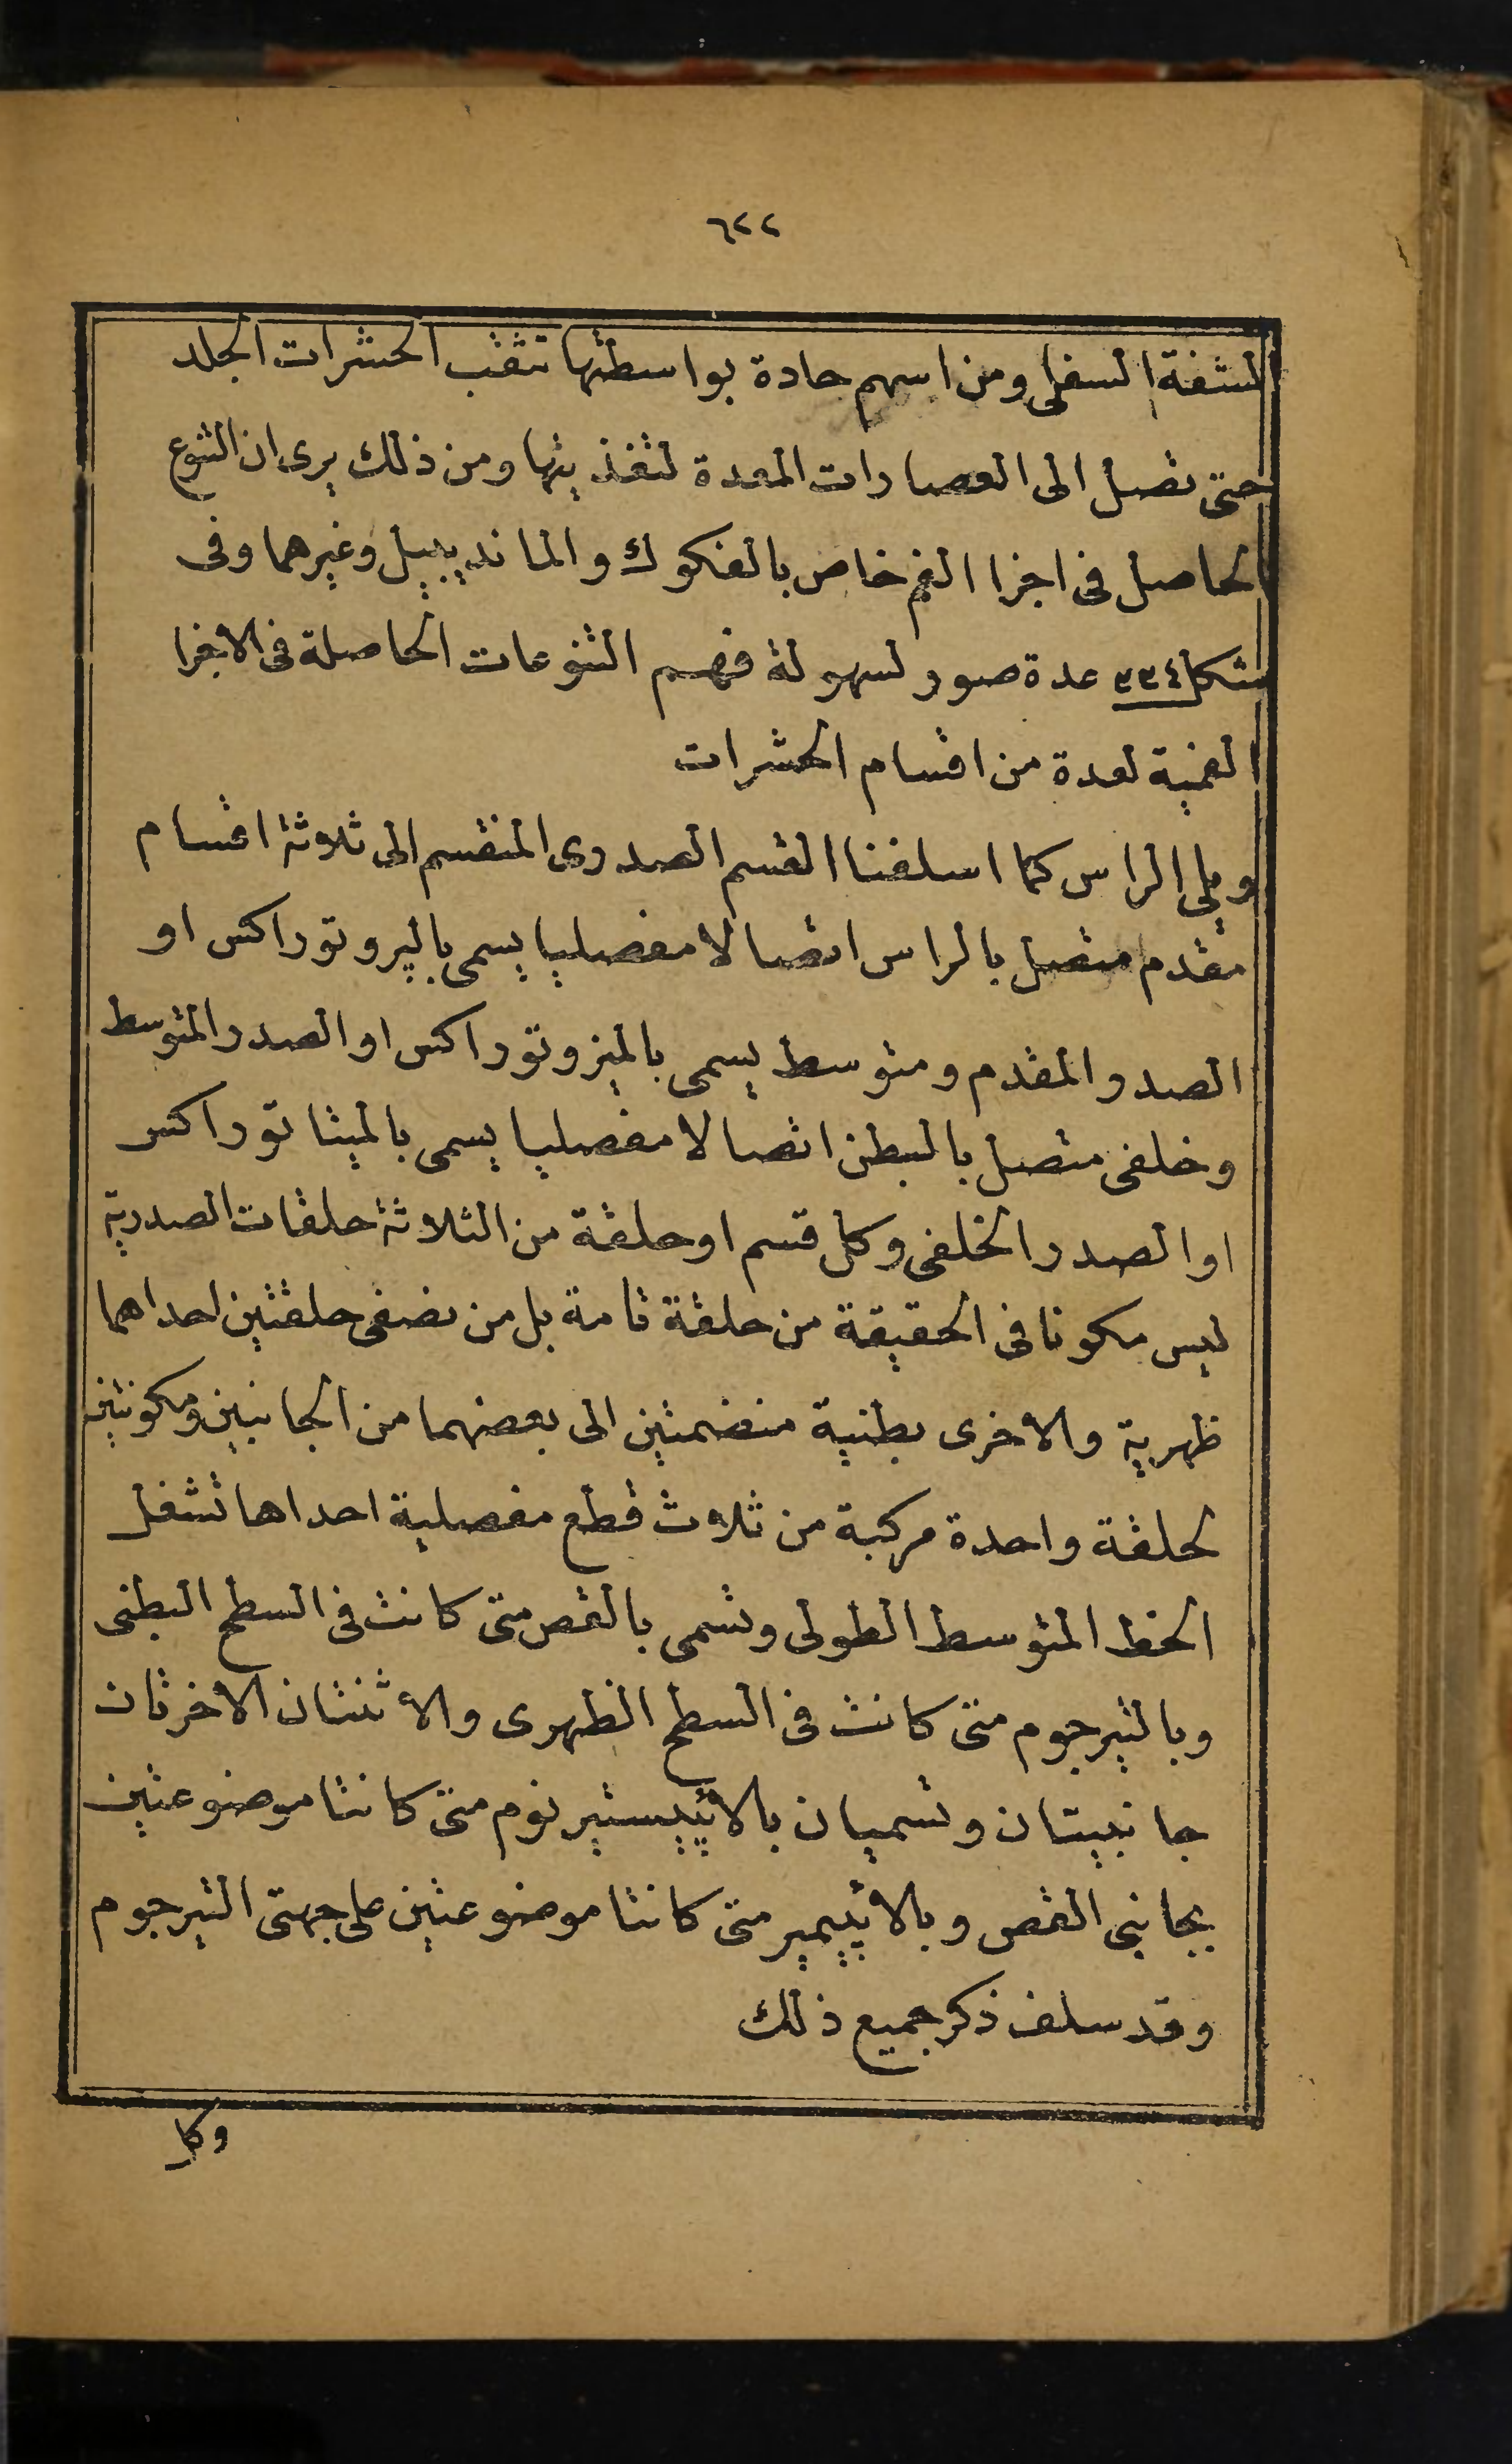 ٦٢٢
الشفة السفلى ومن اسهم حادة بواسطتها تثقب الحشرات الجلد
حتى تصل الى العصارات المعدة لتغذيتها ومن ذلك يرى ان التنوع
الحاصل فى اجزا الفم خاص بالفكوك والمانديبيل وغيرهما وفى
شكل ٣٣٤ عدة صور لسهولة فهم التنوعات الحاصلة فى الاجزا
الفمية لعدة من اقسام الحشرات
ويلى الراس كما اسلفنا القسم الصدرى المنقسم الى ثلاثة اقسام
مقدم متصل بالراس اتصالا مفصليا يسمى بالپروتوراكس او
الصدر المقدم ومتوسط يسمى بالميزوتوراكس او الصدر المتوسط
وخلفى متصل بالبطن اتصالا مفصليا يسمى بالميتاتوراكس
او الصدر الخلفى وكل قسم او حلقة من الثلاثة حلقات الصدرية
ليس مكونا فى الحقيقة من حلقة تامة بل من نصفى حلقتين احداهما
ظهرية والاخرى بطنية منضمتين الى بعضهما من الجانبين ومكونتين
لحلقة واحدة مركبة من ثلاث قطع مفصلية احداها تشغل
الخط المتوسط الطولى وتسمى بالقص متى كانت فى السطح البطنى
وبالتيرجوم متى كانت فى السطح الظهرى والاثنتان الاخرتان
جانبيتان وتسميان بالاپيستيرنوم متى كانتا موضوعتين
بجانبى القص وبالاپيمير متى كانتا موضوعتين على جهتى التيرجوم
وقد سلف ذكر جميع ذلك
وكل